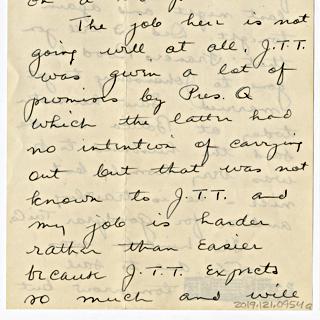 The job here is not
going well at all. J.T.T.
was given a lot of
promises by Pres. Q
which the latter had
no intention of carrying
out but that was not
known to J.T.T. and
my job is harder
rather than easier
because J.T.T. expects
so much and will
2019.121.0954a